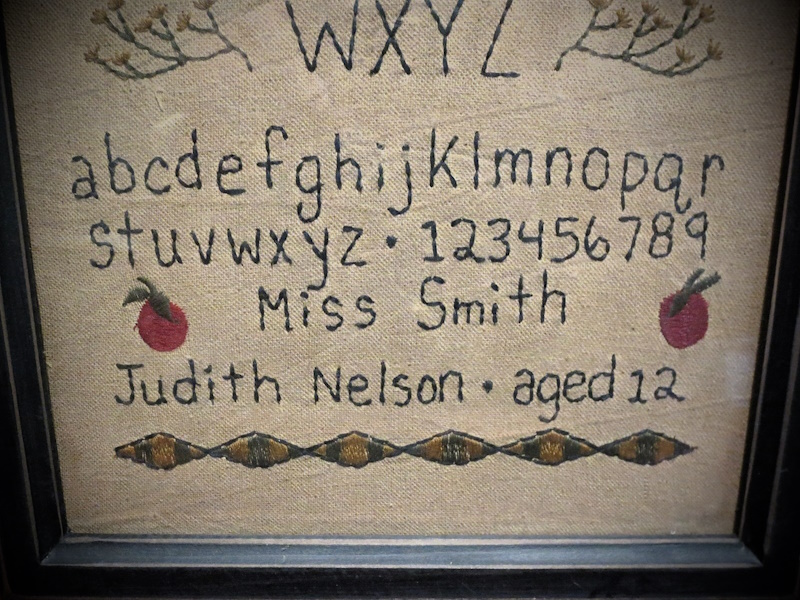 WXYZ
abcdefghijklmnopqr
stuvwxyz • 123456789
Miss Smith
Judith Nelson • aged 12